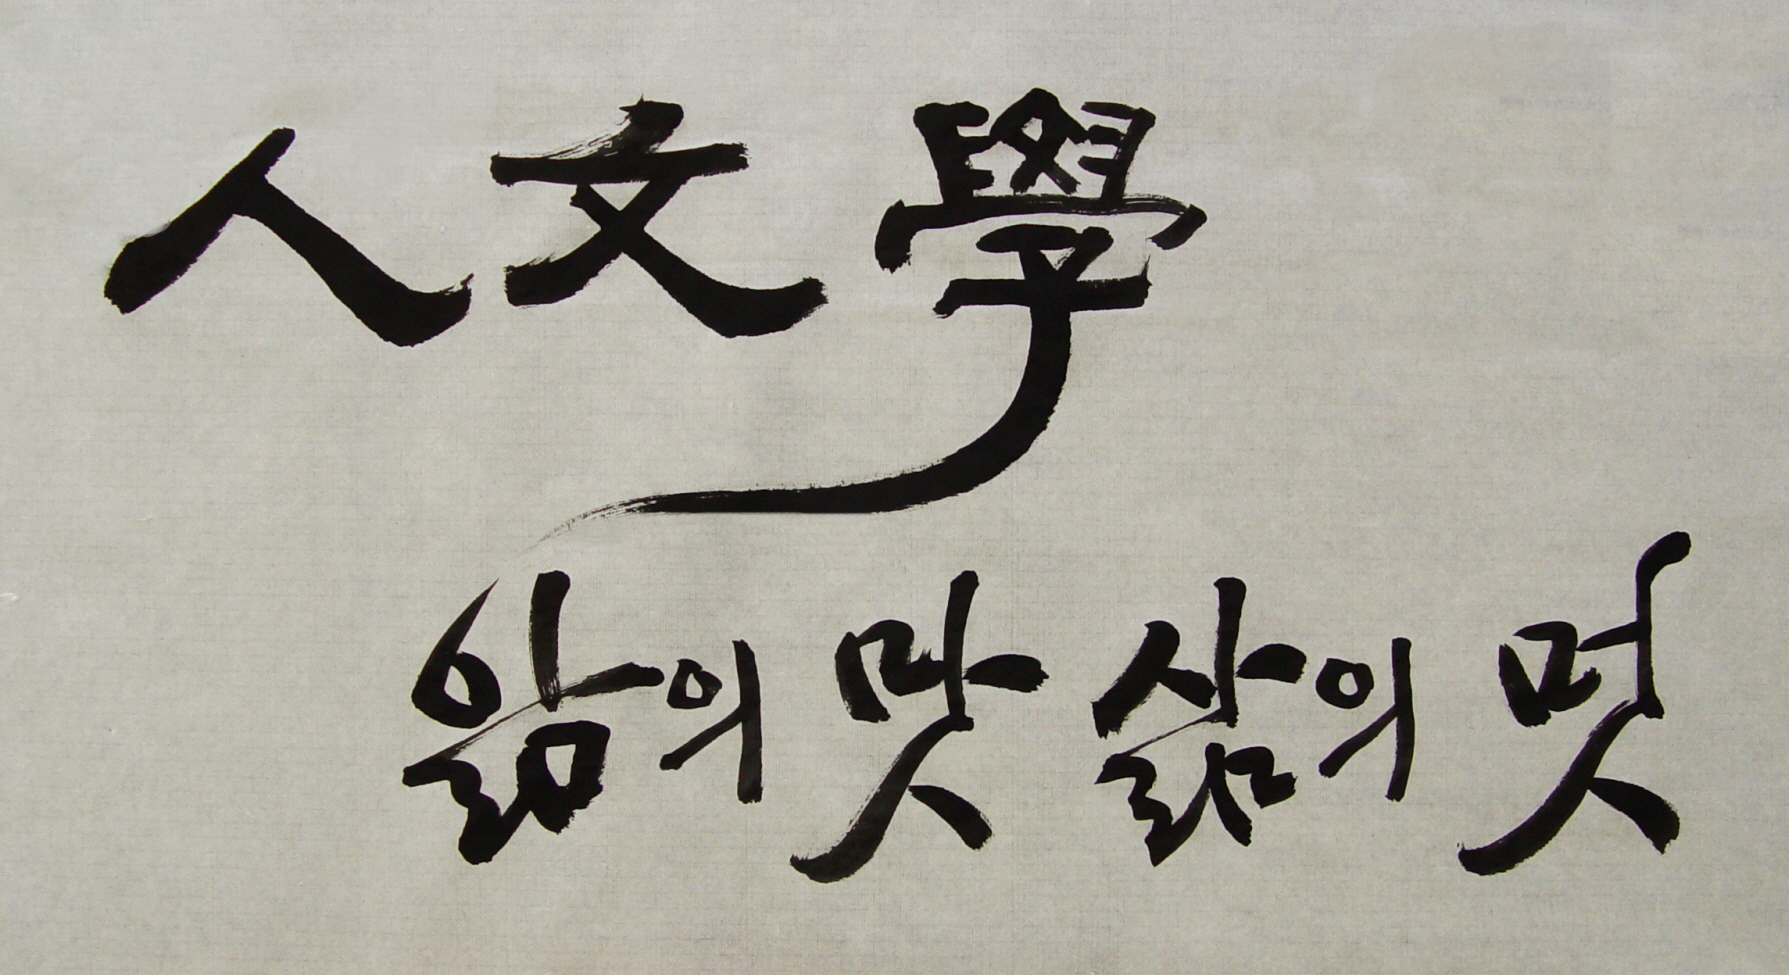 人文學
앎의 맛 삶의 멋